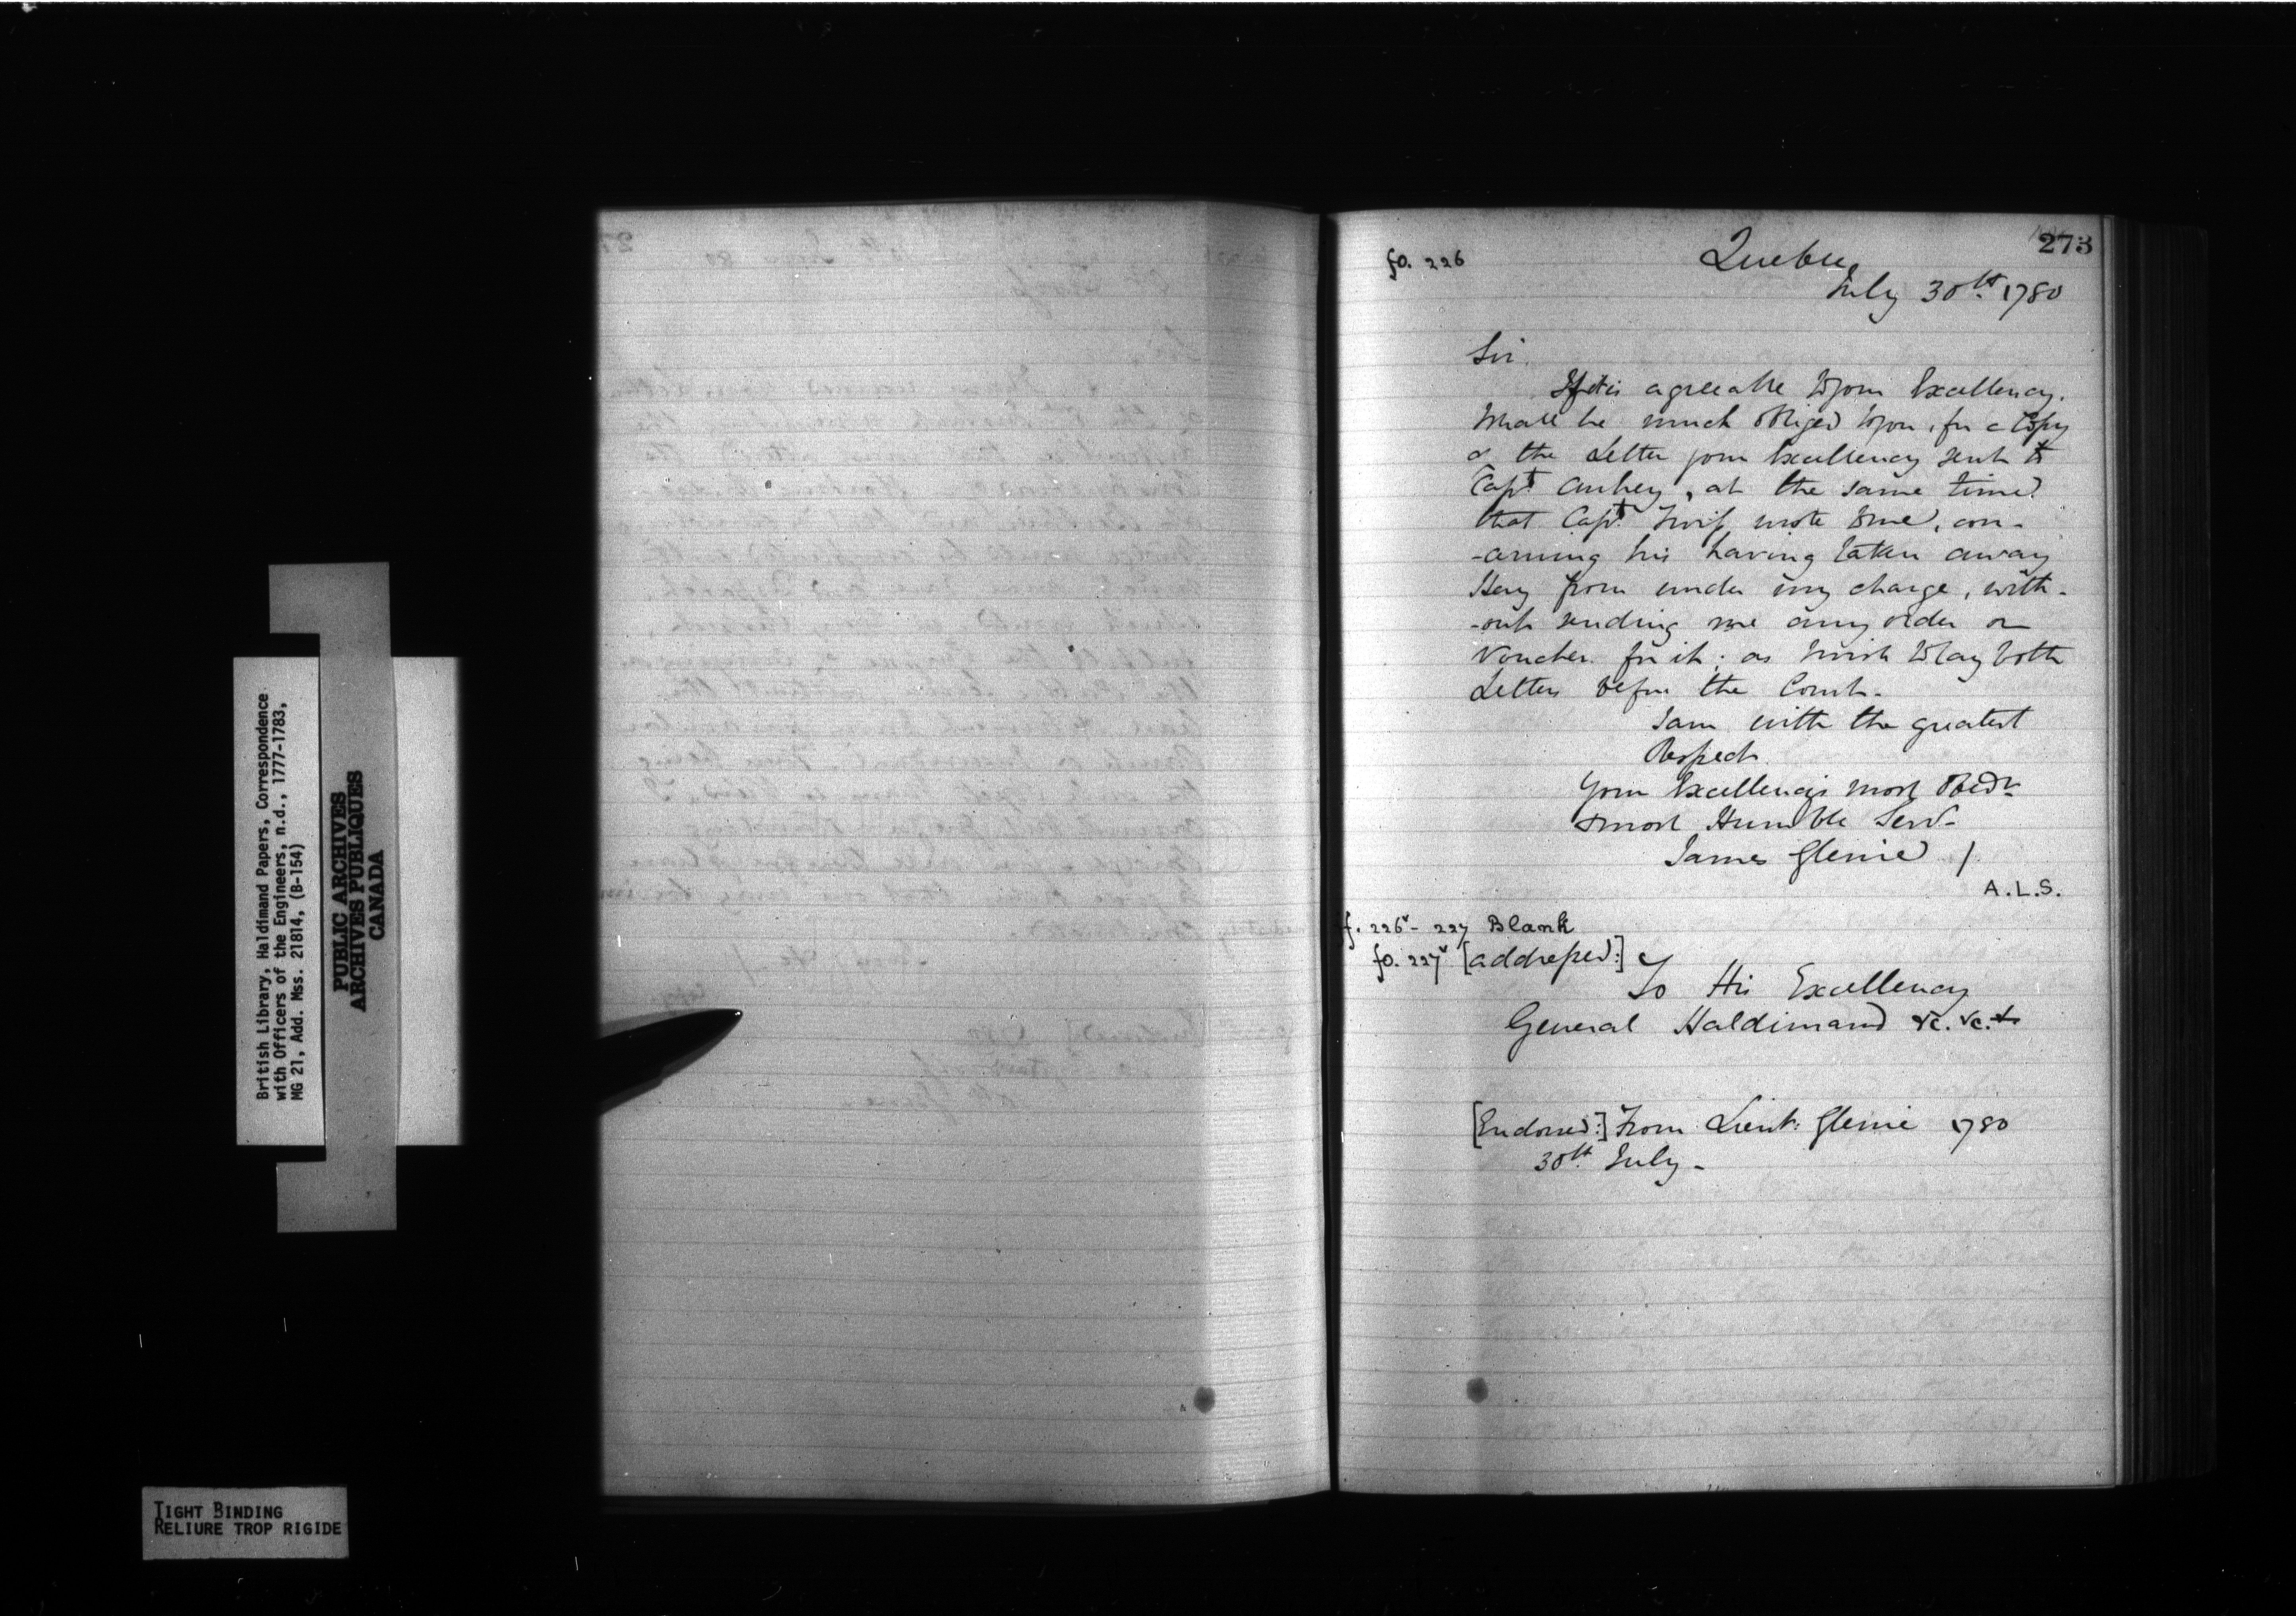 British Library, Haldimand Papers, Correspondence
with Officers of the Engineers, n.d., 1777-1783,
MG 21, Add. Mss. 21814, (B-154)
PUBLIC ARCHIVES
ARCHIVES PUBLIQUES
CANADA
TIGHT BINDING
RELIURE TROP RIGIDE
273
fo. 226
Quebec
July 30th. 1780
Sir.
If it is agreeable to your Excellency.
I shall be much obliged to you, for a Copy
of the Letter your Excellency sent to
Capt. Aubrey, at the same time
that Capt. Twiss wrote to me, con-
-cerning his having taken away
Hay from under my charge, with-
-out sending me any order or
Voucher for it; as I wish to lay both
Letters before the Court.
I am with the greatest
Respect.
Your Excellencys most Obedt
& most Humble Servt
James Glenie /
A.L.S.
ff. 226v - 227 Blank
fo. 227v [addressed:]
To His Excellency
General Haldimand &c. &c. &
[Endorsed:] From Lieut: Glenie 1780
30th. July -